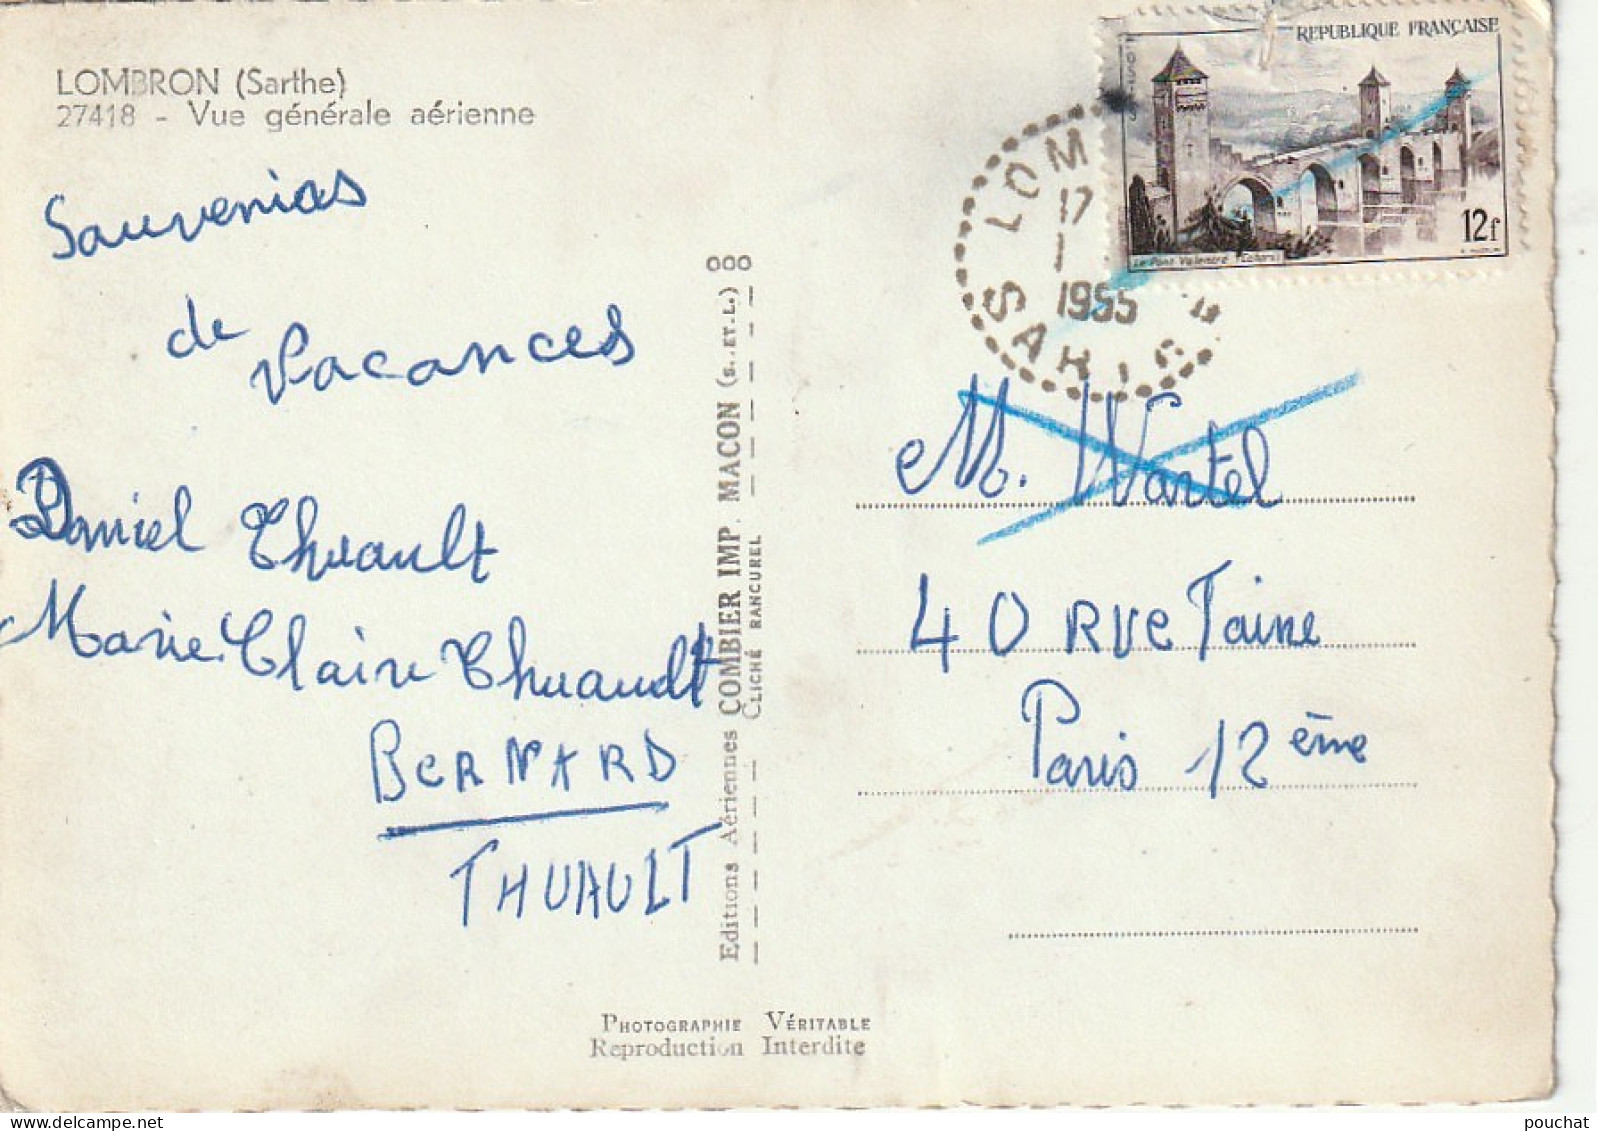 LOMBRON (Sarthe)
27418 - Vue générale aérienne
Souvenirs
de
Vacances
Daniel Thuault
Marie.Claire Thuault
BERNARD
THUAULT
000
Editions Aériennes COMBIER IMP. MACON (S.-ET-L.)
CLICHÉ RANCUREL
PHOTOGRAPHIE VÉRITABLE
Reproduction Interdite
REPUBLIQUE FRANÇAISE
12f
Le Pont Valentré (Cahors)
LOM
17
1
1955
SARTHE
M. Wartel
40 RUE Taine
Paris 12ème
pouchat